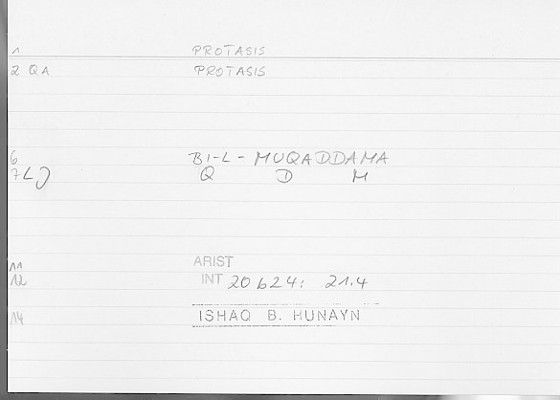 1 PROTASIS
2 QA PROTASIS
6 BI-L-MUQADDAMA
7 LJ Q D M
11 ARIST
12 INT 20 b24: 21.4
14 ISHAQ B. HUNAYN